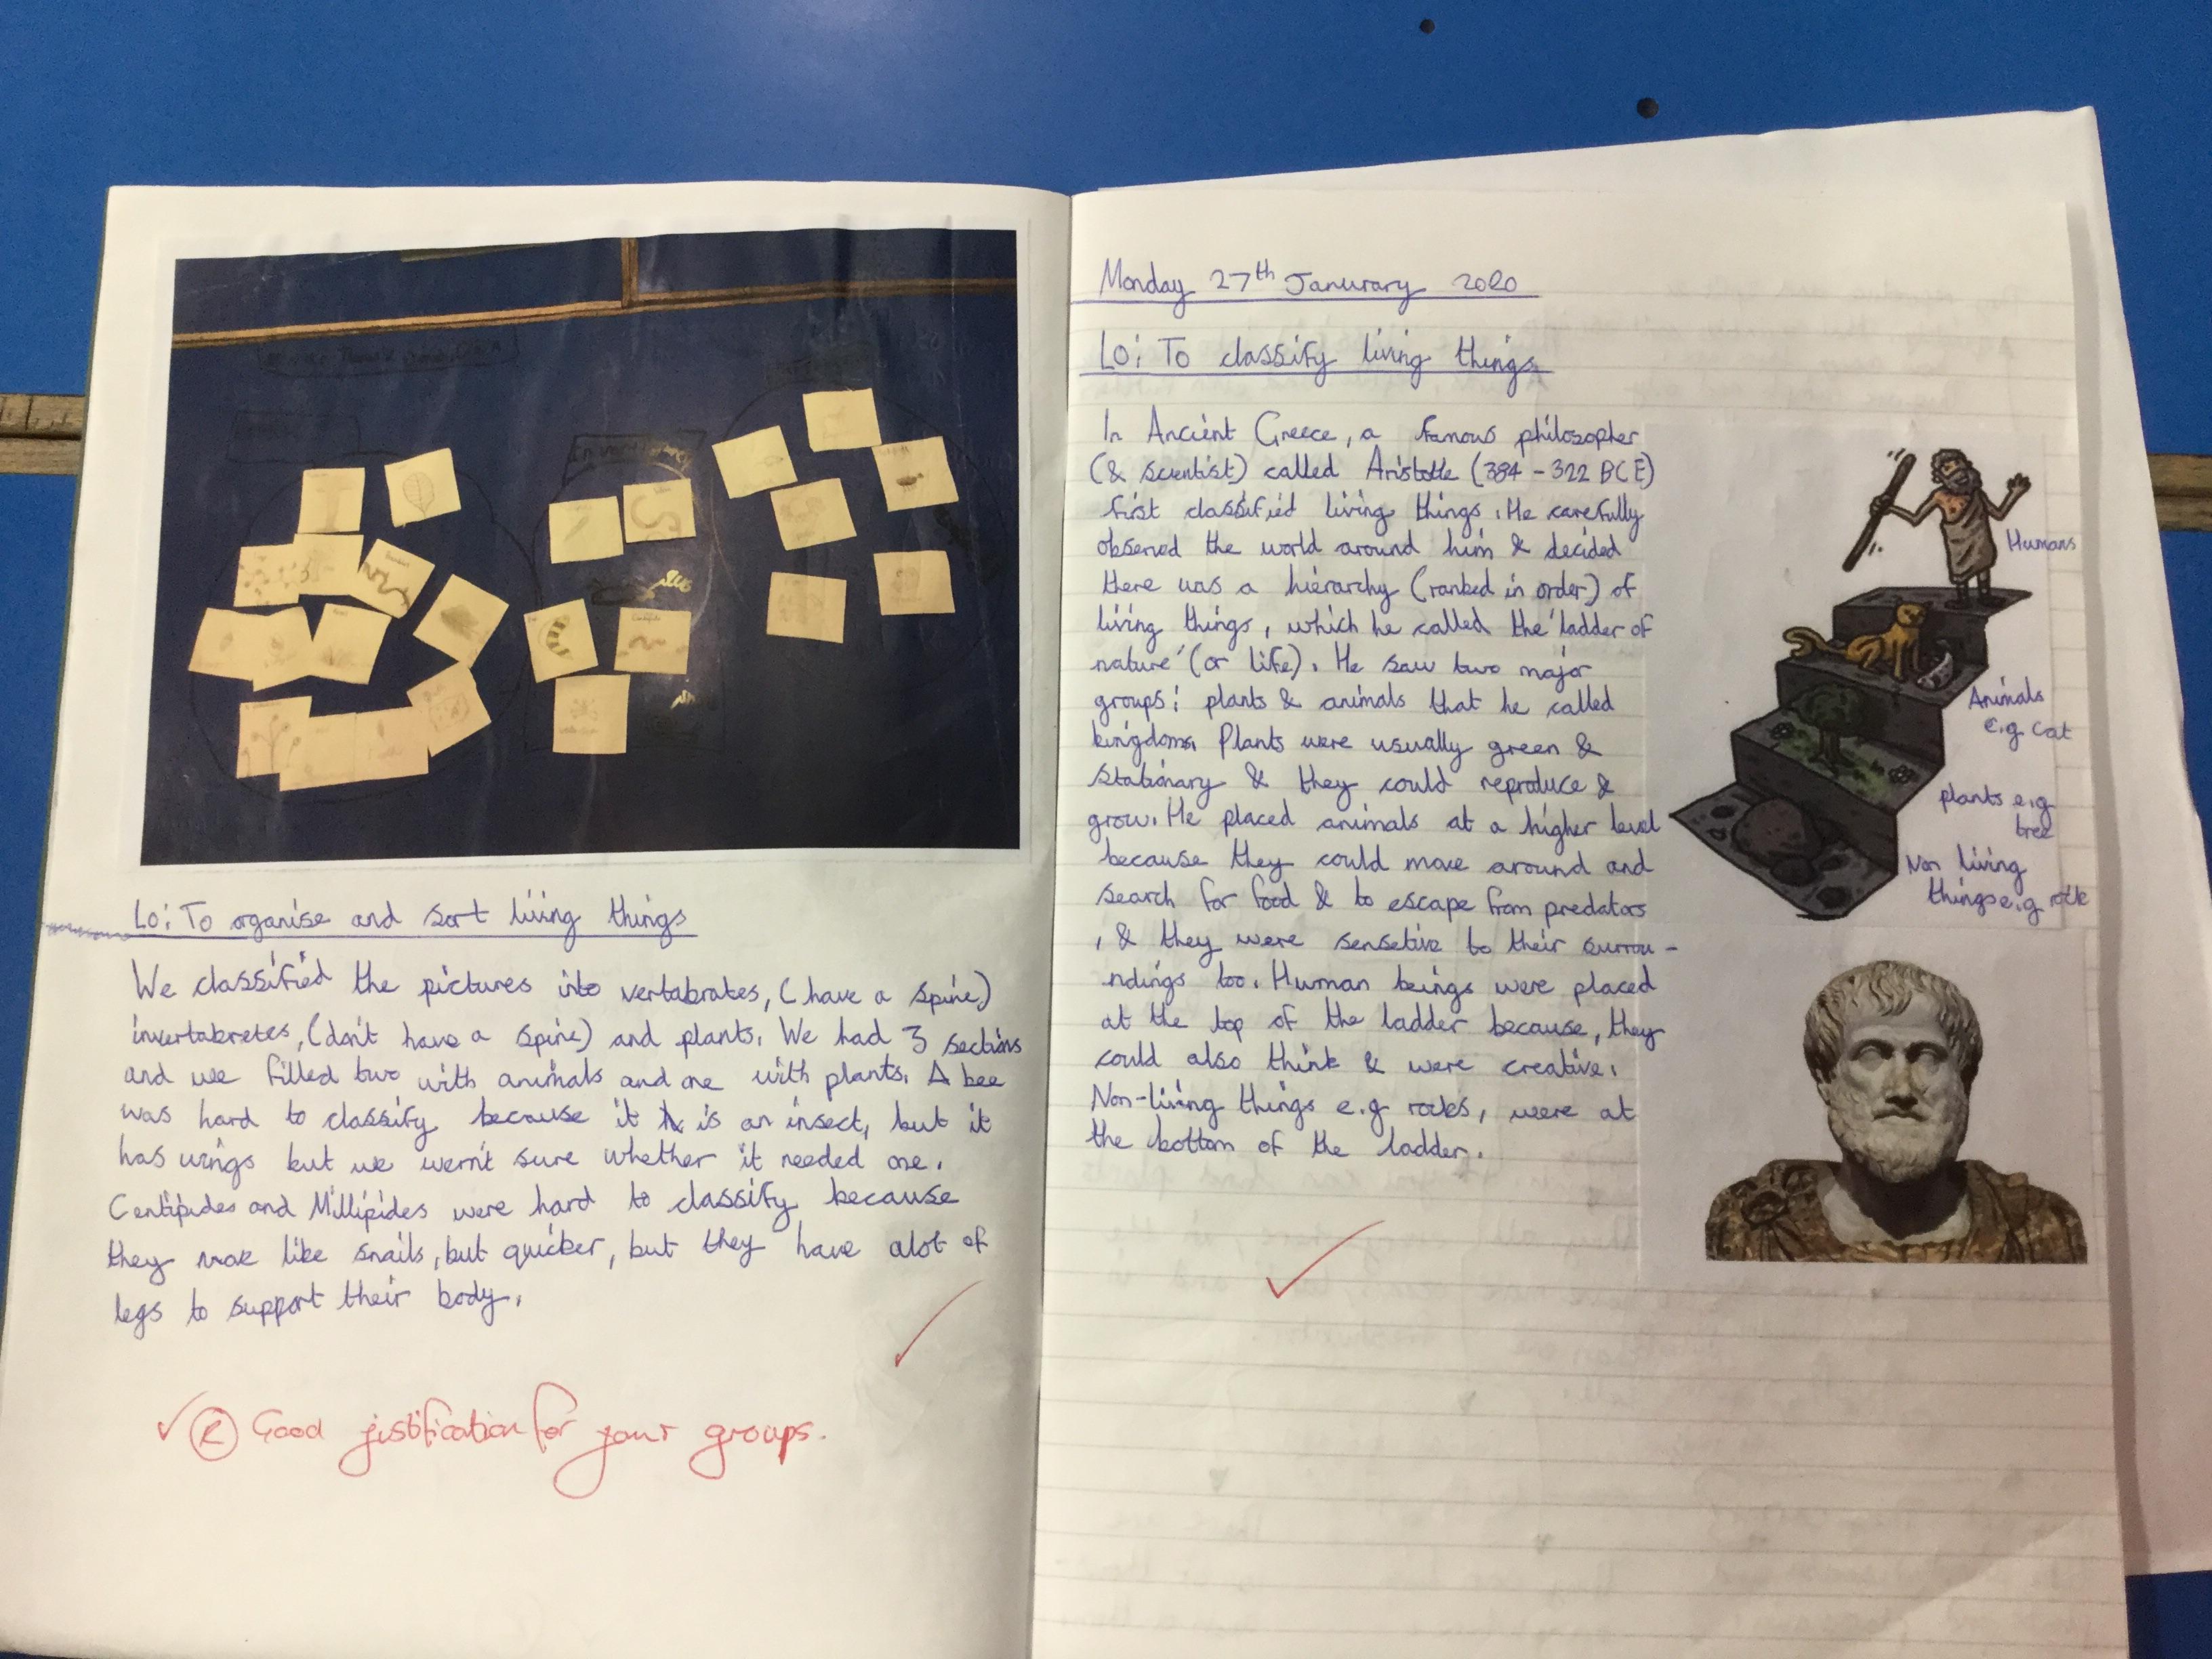 Invertebrates
Lo: To organise and sort living things
We classified the pictures into vertabrates, (have a spine)
invertabretes, (don't have a spine) and plants. We had 3 sections
and we filled two with animals and one with plants. A bee
was hard to classify because it is an insect, but it
has wings but we wern't sure whether it needed one.
Centipides and Millipides were hard to classify because
they move like snails, but quicker, but they have alot of
legs to support their body.
R Good justification for your groups.
Monday 27th Janurary 2020
Lo: To classify living things
In Ancient Greece, a famous philosopher
(& scientist) called Aristotle (384 - 322 BCE)
first classified living things. He carefully
observed the world around him & decided
there was a hierarchy (ranked in order) of
living things, which he called the 'ladder of
nature' (or life). He saw two major
groups: plants & animals that he called
kingdoms. Plants were usually green &
stationary & they could reproduce &
grow. He placed animals at a higher level
because they could move around and
search for food & to escape from predators
, & they were sensetive to their surrou-
ndings too. Human beings were placed
at the top of the ladder because, they
could also think & were creative.
Non-living things e.g rocks, were at
the bottom of the ladder.
Humans
Animals
e.g cat
plants e.g
tree
Non living
things e.g rock